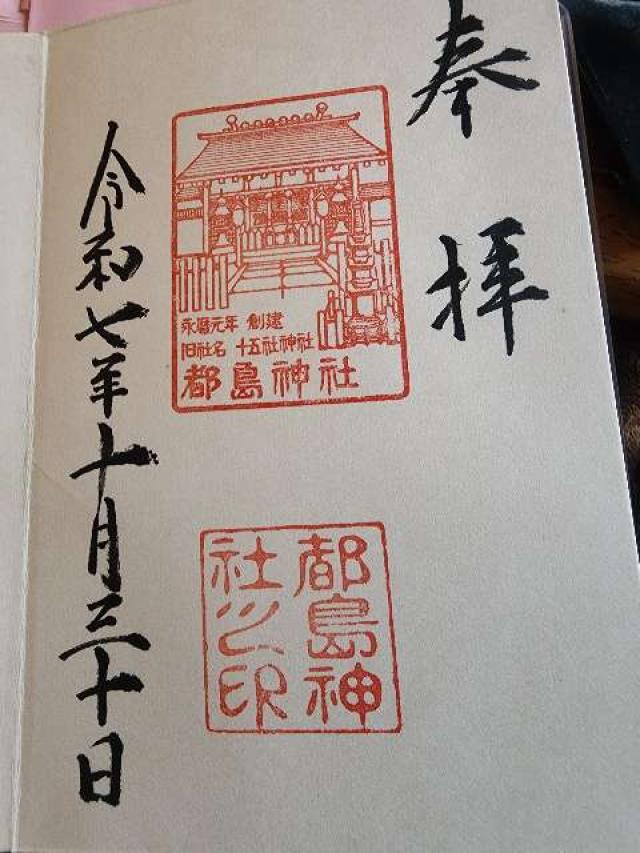 奉拝
永暦元年 創建
旧社名 十五社神社
都島神社
都島神
社之印
令和七年十月三十日